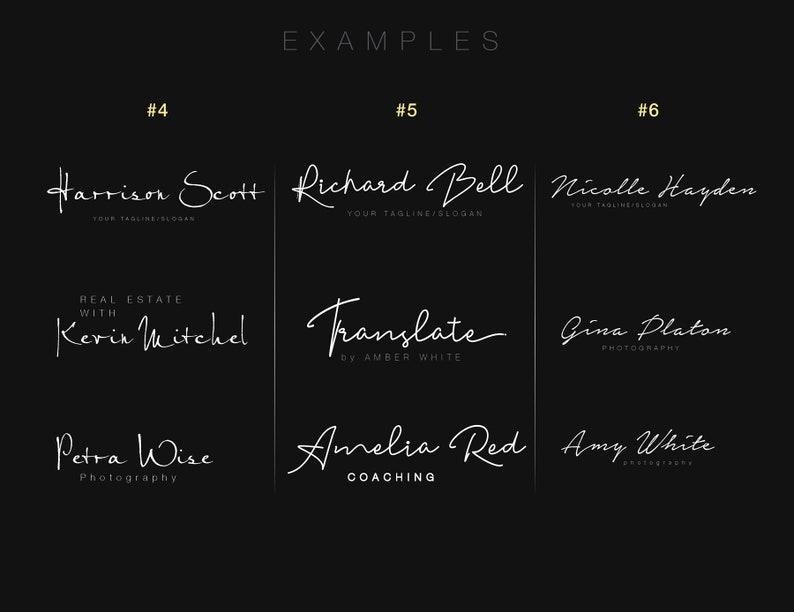 EXAMPLES
#4
Harrison Scott
YOUR TAGLINE/SLOGAN
REAL ESTATE
WITH
Kevin Mitchel
Petra Wise
Photography
#5
Richard Bell
YOUR TAGLINE/SLOGAN
Translate
by AMBER WHITE
Amelia Red
COACHING
#6
Nicolle Hayden
YOUR TAGLINE/SLOGAN
Gina Platon
PHOTOGRAPHY
Amy White
photography